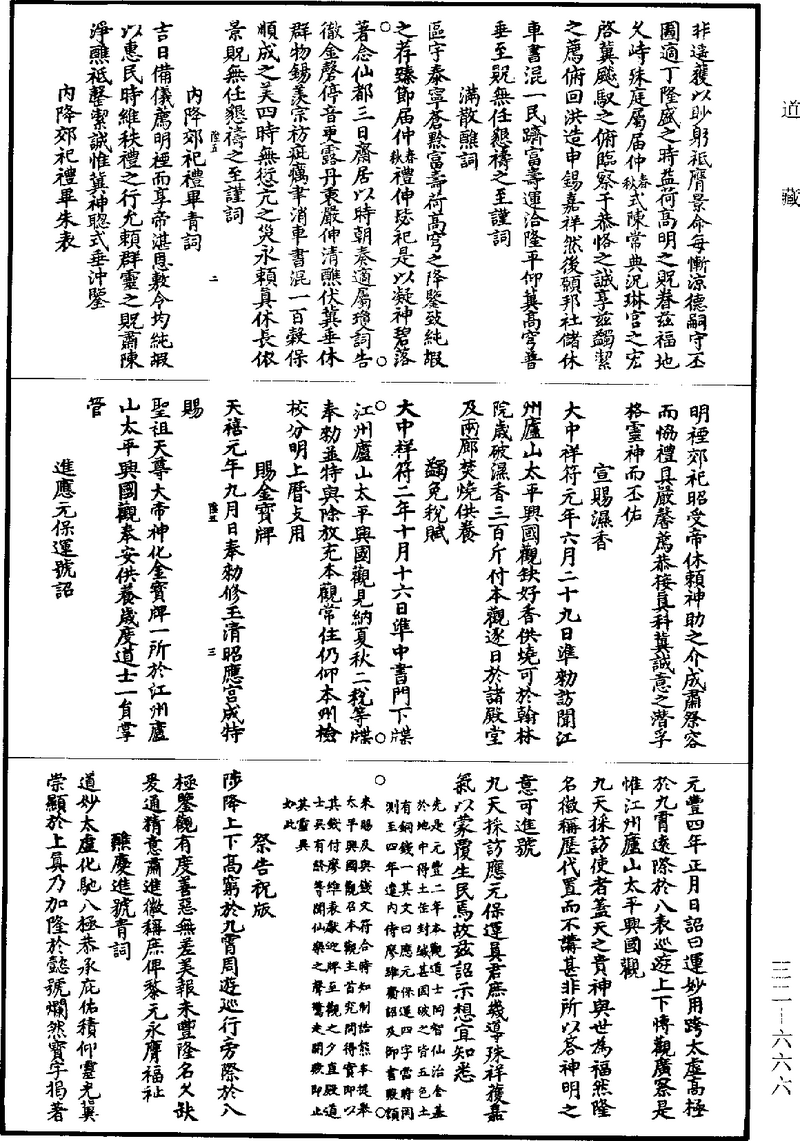 道藏
三二—六六六
非遥獲以眇躬祗膺景命每慚涼德嗣守丕
圖適丁隆盛之時益荷高明之貺眷茲福地
久峙殊庭屬届仲春秋式陳常典況琳宫之宏
啓冀飈馭之俯臨察于恭恪之誠享茲蠲潔
之薦俯回洪造申錫嘉祥然後願邦社儲休
車書混一民躋富壽運洽隆平仰冀高穹普
垂至貺無任懇禱之至謹詞
滿散醮詞
區宇泰寧蒼黔富壽荷高穹之降鑒致純嘏
之荐臻節届仲春秋禮伸毖祀是以凝神碧落
著念仙都三日齋居以時朝奏適屬瓊詞告
徹金磬停音更露丹衷嚴伸清醮伏冀垂休
群物錫羨宗祊疵癘聿消車書混一百穀保
順成之美四時無愆亢之災永賴真休長依
景貺無任懇禱之至謹詞
陸五
二
內降郊祀禮畢青詞
吉日備儀薦明禋而享帝湛恩敷令均純嘏
以惠民時維秩禮之行允賴群靈之貺肅陳
淨醮祗罄潔誠惟冀神聰式垂沖鑒
內降郊祀禮畢朱表
明禋郊祀昭受帝休賴神助之介成肅祭容
而恊禮具嚴馨薦恭按真科冀誠意之潛孚
格靈神而丕佑
宣賜濕香
大中祥符元年六月二十九日準勑訪聞江
州廬山太平興國觀缺好香供燒可於翰林
院歲破濕香三百斤付本觀逐日於諸殿堂
及兩廊焚燒供養
蠲免稅賦
大中祥符二年十月十六日準中書門下牒
江州廬山太平興國觀見納夏秋二稅等牒
奉勑並特與除放充本觀常住仍仰本州檢
校分明上曆支用
賜金寶牌
天禧元年九月日奉勑修玉清昭應宫成特
陸五
三
賜
聖祖天尊大帝神化金寶牌一所於江州廬
山太平興國觀奉安供養歲度道士一員掌
管
進應元保運號詔
元豐四年正月日詔曰運妙用跨太虛高極
於九霄遠際於八表巡遊上下博觀廣察是
惟江州廬山太平興國觀
九天採訪使者蓋天之貴神與世為福然隆
名徽稱歷代置而不講甚非所以答神明之
意可進號
九天採訪應元保運真君庶幾導珠祥獲嘉
氣以蒙覆生民焉故茲詔示想宜知悉
先是元豐二年本觀道士陶智仙治舍基
於地中得土缶封緘甚固破之皆五色土
有銅錢一其文曰應元保運四字當時罔
測至四年遣內侍廖維齎詔及御書殿額
來賜及與錢文符合時知制誥熊本提舉
太平興國觀召本觀主首究問得實即以
其錢付廖維表獻迎牌至觀之夕直殿道
士吳有終等聞仙樂之聲驚走開殿即止
其靈異
如此
祭告祝版
陟降上下高窮於九霄周遊巡行旁際於八
極鑒觀有度善惡無差美報未豐隆名久缺
爰通精意肅進徽稱庶俾黎元永膺福祉
醮慶進號青詞
道妙太虛化馳八極恭承庇佑積仰靈光冀
崇顯於上真乃加隆於懿號爛然寶字揭著